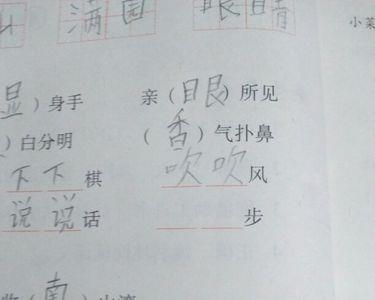 满园 眼睛
小菜
显）身手 亲（眼）所见
）白分明 （香）气扑鼻
下下棋 吹吹风
说说话 步
（南）